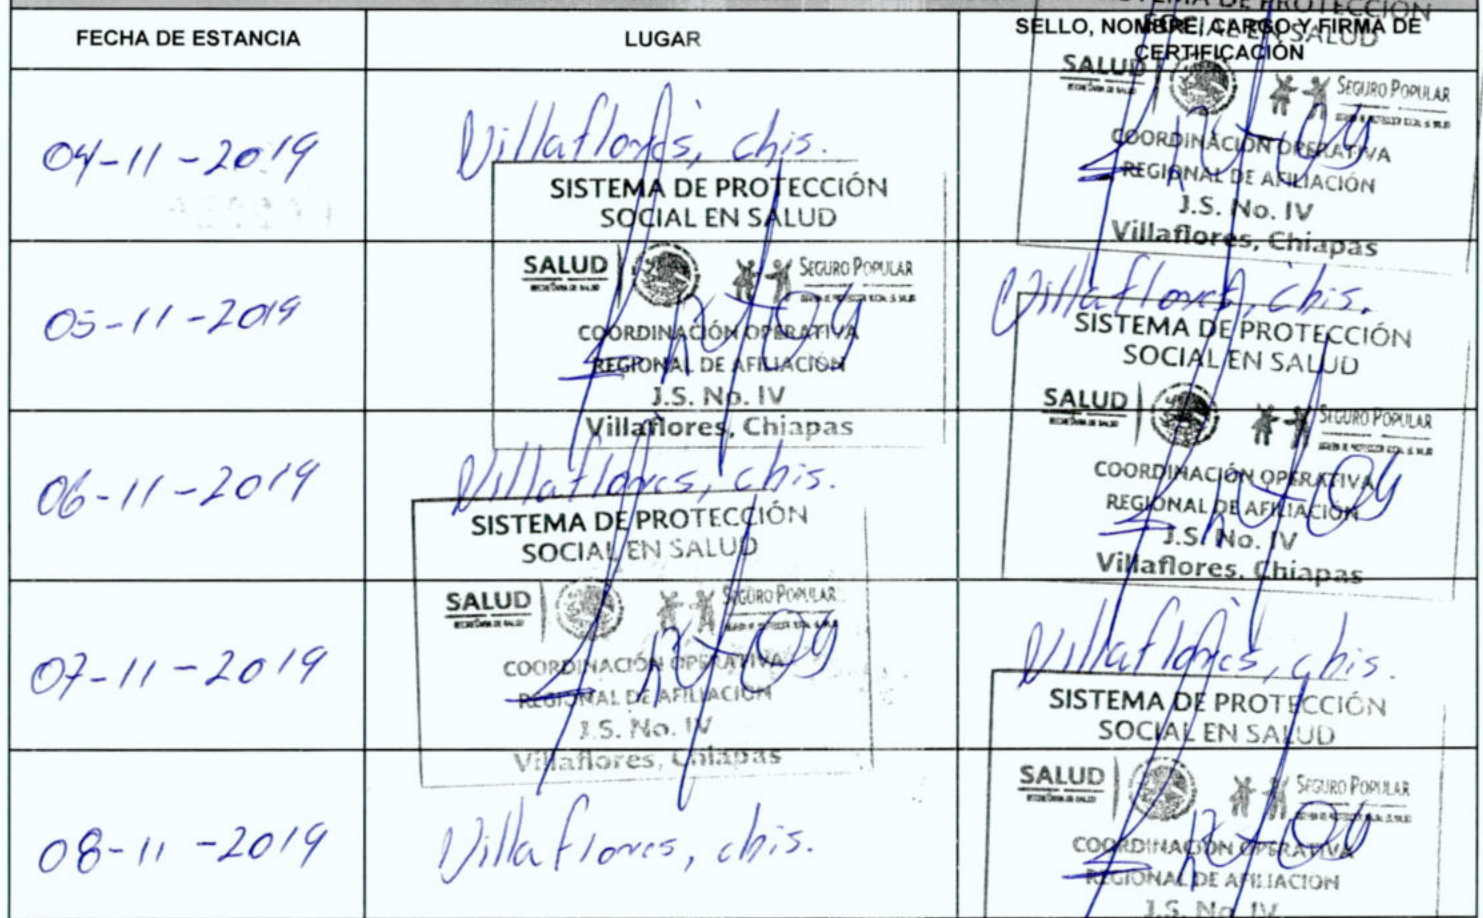 SISTEMA DE PROTECCIÓN
SOCIAL EN SALUD
FECHA DE ESTANCIA
LUGAR
SELLO, NOMBRE, CARGO Y FIRMA DE
CERTIFICACIÓN
SALUD
SEGURO POPULAR
COORDINACIÓN OPERATIVA
REGIONAL DE AFILIACIÓN
J.S. No. IV
Villaflores, Chiapas
04-11-2019
Villaflores, chis.
SISTEMA DE PROTECCIÓN
SOCIAL EN SALUD
SALUD
SECRETARÍA DE SALUD
SEGURO POPULAR
COORDINACIÓN OPERATIVA
REGIONAL DE AFILIACIÓN
J.S. No. IV
Villaflores, Chiapas
05-11-2019
Villaflores, chis.
SISTEMA DE PROTECCIÓN
SOCIAL EN SALUD
SALUD
SEGURO POPULAR
COORDINACIÓN OPERATIVA
REGIONAL DE AFILIACIÓN
J.S. No. IV
Villaflores, Chiapas
06-11-2019
Villaflores, chis.
SISTEMA DE PROTECCIÓN
SOCIAL EN SALUD
SALUD
SEGURO POPULAR
COORDINACIÓN OPERATIVA
REGIONAL DE AFILIACIÓN
J.S. No. IV
Villaflores, Chiapas
07-11-2019
Villaflores, chis.
SISTEMA DE PROTECCIÓN
SOCIAL EN SALUD
SALUD
SEGURO POPULAR
COORDINACIÓN OPERATIVA
REGIONAL DE AFILIACIÓN
J.S. No. IV
08-11-2019
Villaflores, chis.